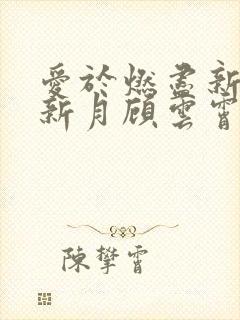 愛於燃盡新
新月顧雲霄
陳攀霄